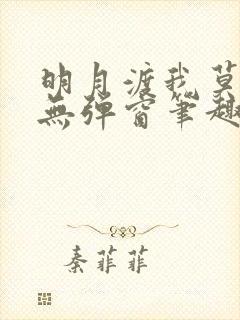 明月渡我莫
無彈窗筆趣
秦菲菲